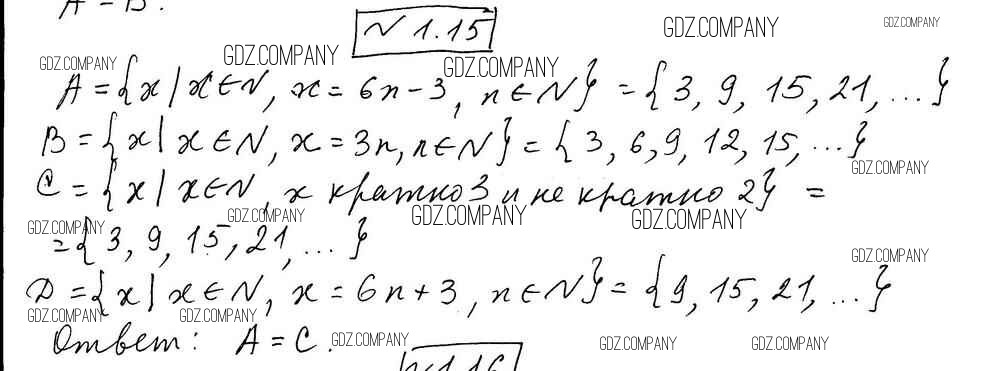 A = B.
N 1.15
GDZ.COMPANY GDZ.COMPANY GDZ.COMPANY GDZ.COMPANY GDZ.COMPANY
A = {x | x ∈ N, x = 6n - 3, n ∈ N} = {3, 9, 15, 21, ...}
B = {x | x ∈ N, x = 3n, n ∈ N} = {3, 6, 9, 12, 15, ...}
GDZ.COMPANY
C = {x | x ∈ N, x кратно 3 и не кратно 2} =
GDZ.COMPANY GDZ.COMPANY GDZ.COMPANY GDZ.COMPANY
= {3, 9, 15, 21, ...}
GDZ.COMPANY
D = {x | x ∈ N, x = 6n + 3, n ∈ N} = {9, 15, 21, ...}
GDZ.COMPANY GDZ.COMPANY
Ответ: A = C.
GDZ.COMPANY GDZ.COMPANY GDZ.COMPANY
N 1.16